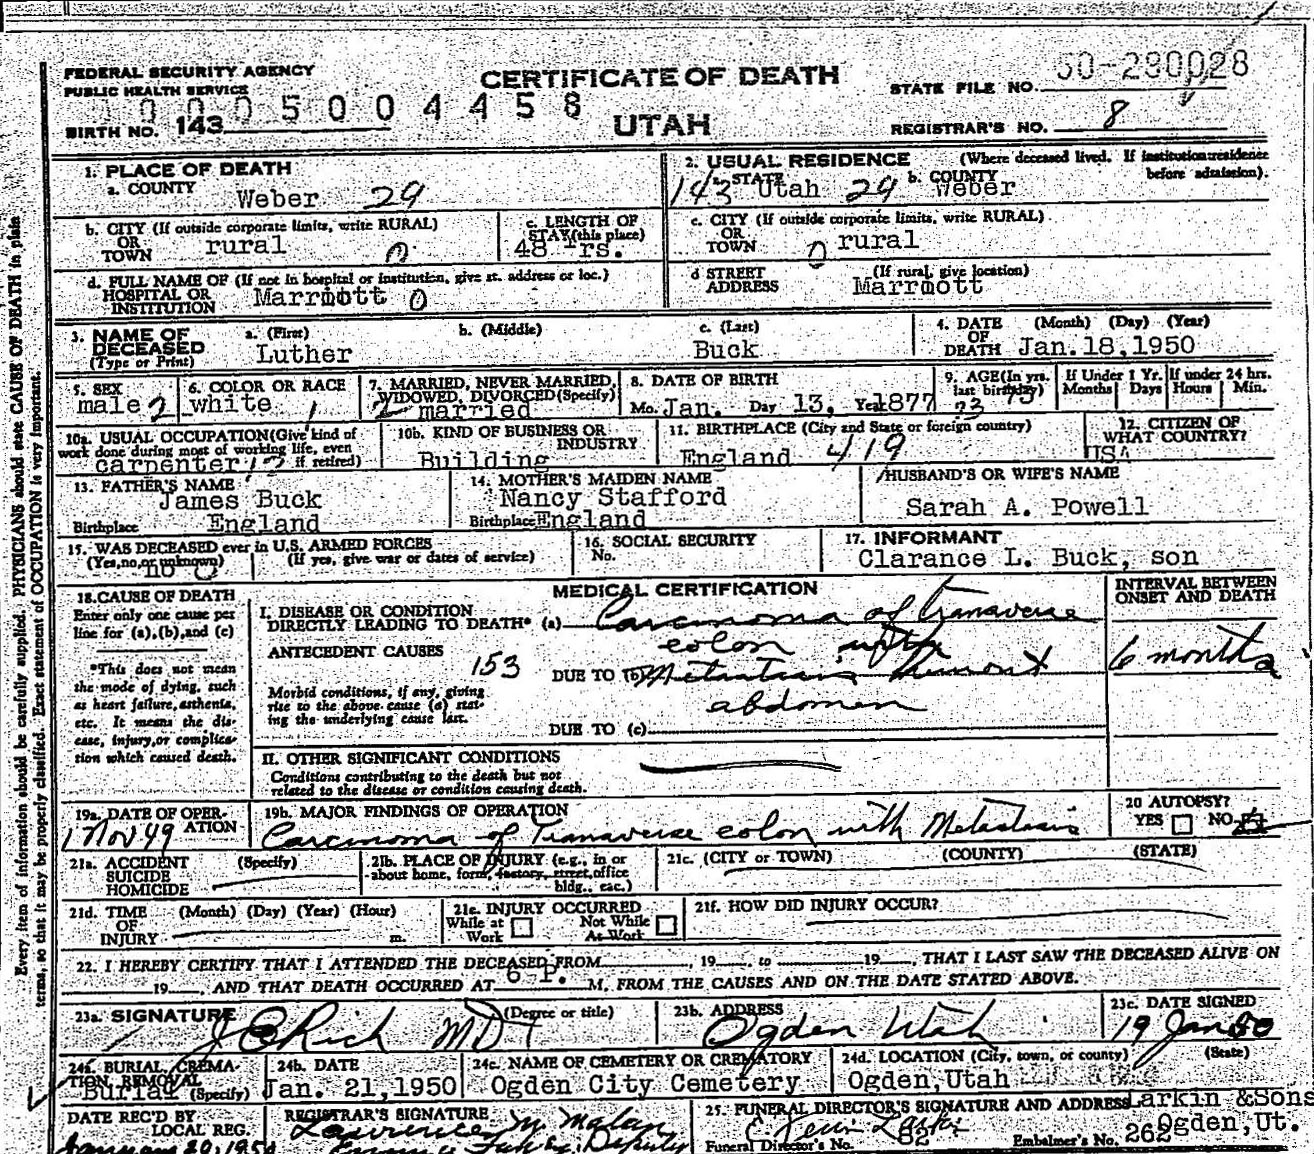 FEDERAL SECURITY AGENCY
PUBLIC HEALTH SERVICE
CERTIFICATE OF DEATH
STATE FILE NO. 50-280028
BIRTH NO. 143
0005004458
UTAH
REGISTRAR'S NO. 8
1. PLACE OF DEATH
a. COUNTY Weber 29
2. USUAL RESIDENCE (Where deceased lived. If institution: residence before admission).
143 a. STATE Utah 29 b. COUNTY Weber
b. CITY (If outside corporate limits, write RURAL) OR TOWN rural 0
c. LENGTH OF STAY (this place) 48 Yrs.
c. CITY (If outside corporate limits, write RURAL) OR TOWN 0 rural
d. FULL NAME OF (If not in hospital or institution, give st. address or loc.) HOSPITAL OR INSTITUTION Marrmott 0
d STREET ADDRESS (If rural, give location) Marrmott
3. NAME OF DECEASED (Type or Print) a. (First) Luther b. (Middle) c. (Last) Buck
4. DATE OF DEATH (Month) (Day) (Year) Jan. 18, 1950
5. SEX male 2
6. COLOR OR RACE white 1
7. MARRIED, NEVER MARRIED, WIDOWED, DIVORCED (Specify) 2 married
8. DATE OF BIRTH Mo. Jan. Day 13, Year 1877
9. AGE (In yrs. last birthday) 73 If Under 1 Yr. Months Days If under 24 hrs. Hours Min.
10a. USUAL OCCUPATION (Give kind of work done during most of working life, even if retired) carpenter
10b. KIND OF BUSINESS OR INDUSTRY Building
11. BIRTHPLACE (City and State or foreign country) England 419
12. CITIZEN OF WHAT COUNTRY? USA
13. FATHER'S NAME James Buck
Birthplace England
14. MOTHER'S MAIDEN NAME Nancy Stafford
Birthplace England
HUSBAND'S OR WIFE'S NAME
Sarah A. Powell
15. WAS DECEASED ever in U.S. ARMED FORCES
(Yes, no, or unknown) no 0 (If yes, give war or dates of service)
16. SOCIAL SECURITY No.
17. INFORMANT
Clarance L. Buck, son
18. CAUSE OF DEATH
Enter only one cause per line for (a), (b), and (c)
*This does not mean the mode of dying, such as heart failure, asthenia, etc. It means the disease, injury, or complication which caused death.
MEDICAL CERTIFICATION
INTERVAL BETWEEN ONSET AND DEATH
I. DISEASE OR CONDITION DIRECTLY LEADING TO DEATH* (a) Carcinoma of Transverse colon with
ANTECEDENT CAUSES 153
Morbid conditions, if any, giving rise to the above cause (a) stating the underlying cause last.
DUE TO (b) Metastasis abdomen
6 months
DUE TO (c)
II. OTHER SIGNIFICANT CONDITIONS
Conditions contributing to the death but not related to the disease or condition causing death.
19a. DATE OF OPERATION 1 Nov 49
19b. MAJOR FINDINGS OF OPERATION
Carcinoma of Transverse colon with Metastasis
20 AUTOPSY?
YES NO
21a. ACCIDENT SUICIDE HOMICIDE (Specify)
21b. PLACE OF INJURY (e.g., in or about home, form, factory, street, office bldg., etc.)
21c. (CITY or TOWN) (COUNTY) (STATE)
21d. TIME OF INJURY (Month) (Day) (Year) (Hour) m.
21e. INJURY OCCURRED While at Work Not While At Work
21f. HOW DID INJURY OCCUR?
22. I HEREBY CERTIFY THAT I ATTENDED THE DECEASED FROM , 19 , to 19 , THAT I LAST SAW THE DECEASED ALIVE ON
19 , AND THAT DEATH OCCURRED AT 6 P. M. FROM THE CAUSES AND ON THE DATE STATED ABOVE.
23a. SIGNATURE (Degree or title)
J C Rich MD
23b. ADDRESS
Ogden Utah
23c. DATE SIGNED
19 Jan 50
24a. BURIAL, CREMATION, REMOVAL (Specify) Burial
24b. DATE
Jan. 21, 1950
24c. NAME OF CEMETERY OR CREMATORY
Ogden City Cemetery
24d. LOCATION (City, town, or county) (State)
Ogden, Utah
DATE REC'D BY LOCAL REG.
January 20, 1950
REGISTRAR'S SIGNATURE
Lawrence M Malan
Deputy
25. FUNERAL DIRECTOR'S SIGNATURE AND ADDRESS Larkin & Sons
Ogden, Ut.
Funeral Director's No. 82 Embalmer's No. 262
Every item of information should be carefully supplied. PHYSICIANS should state CAUSE OF DEATH in plain
terms, so that it may be properly classified. Exact statement of OCCUPATION is very important.